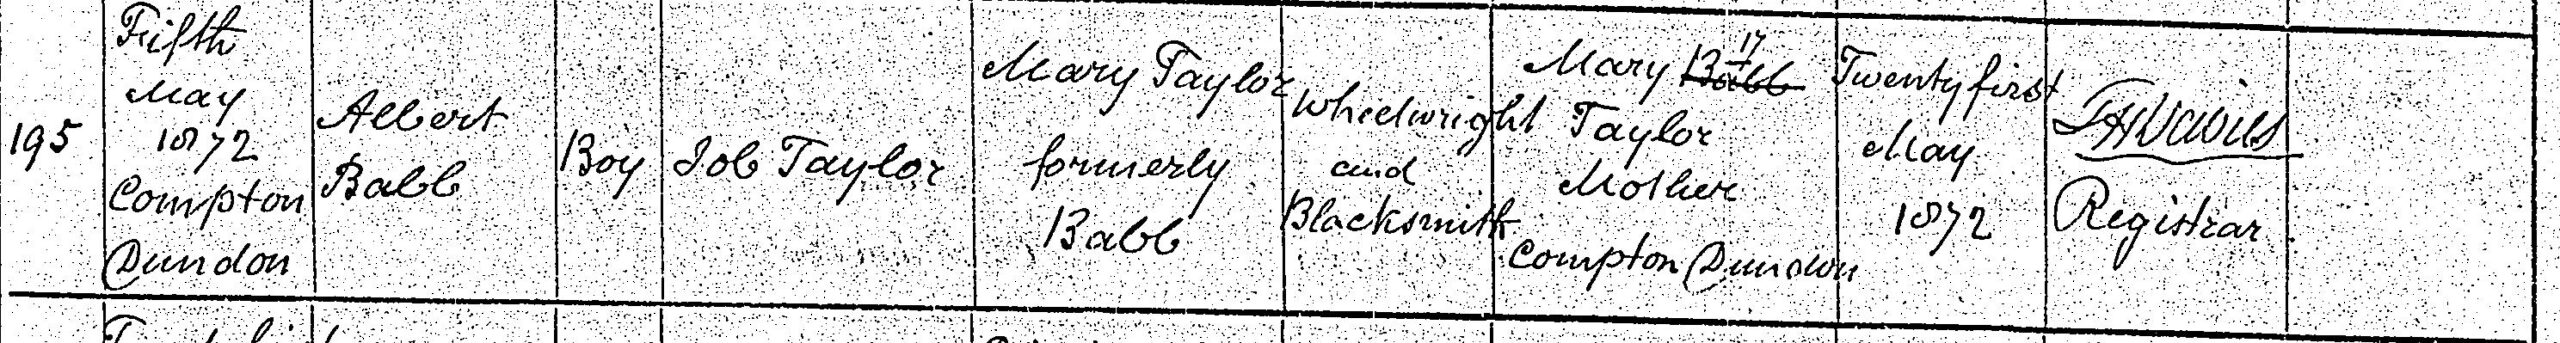 195
Fifth
May
1872
Compton
Dundon
Albert
Babb
Boy
Job Taylor
Mary Taylor
formerly
Babb
Wheelwright
and
Blacksmith
17
Mary Babb
Taylor
Mother
Compton Dundon
Twenty first
May
1872
Davies
Registrar